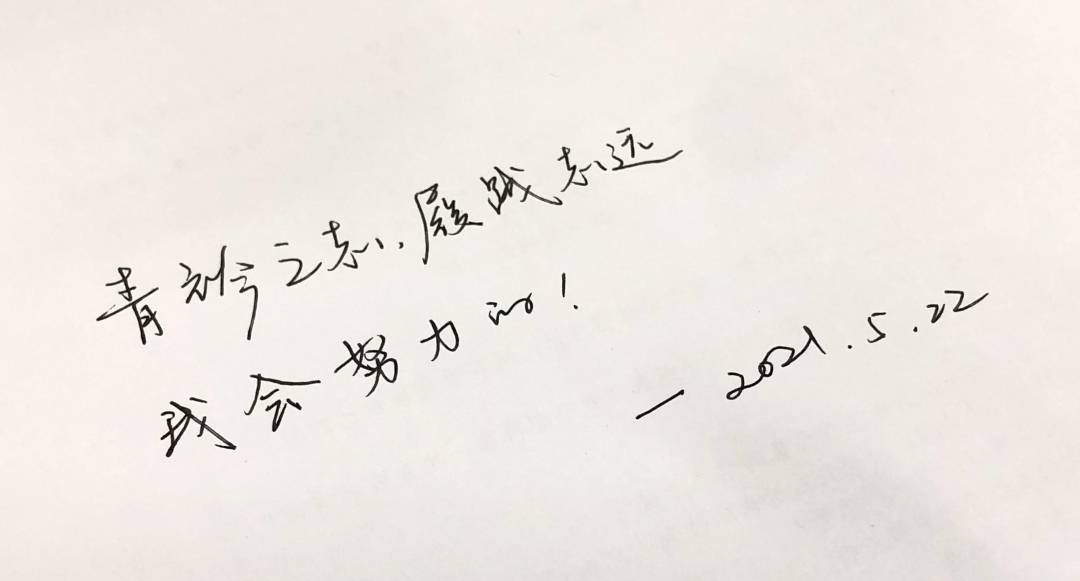 青衿之志,履践志远
我会努力的!
—2021.5.22